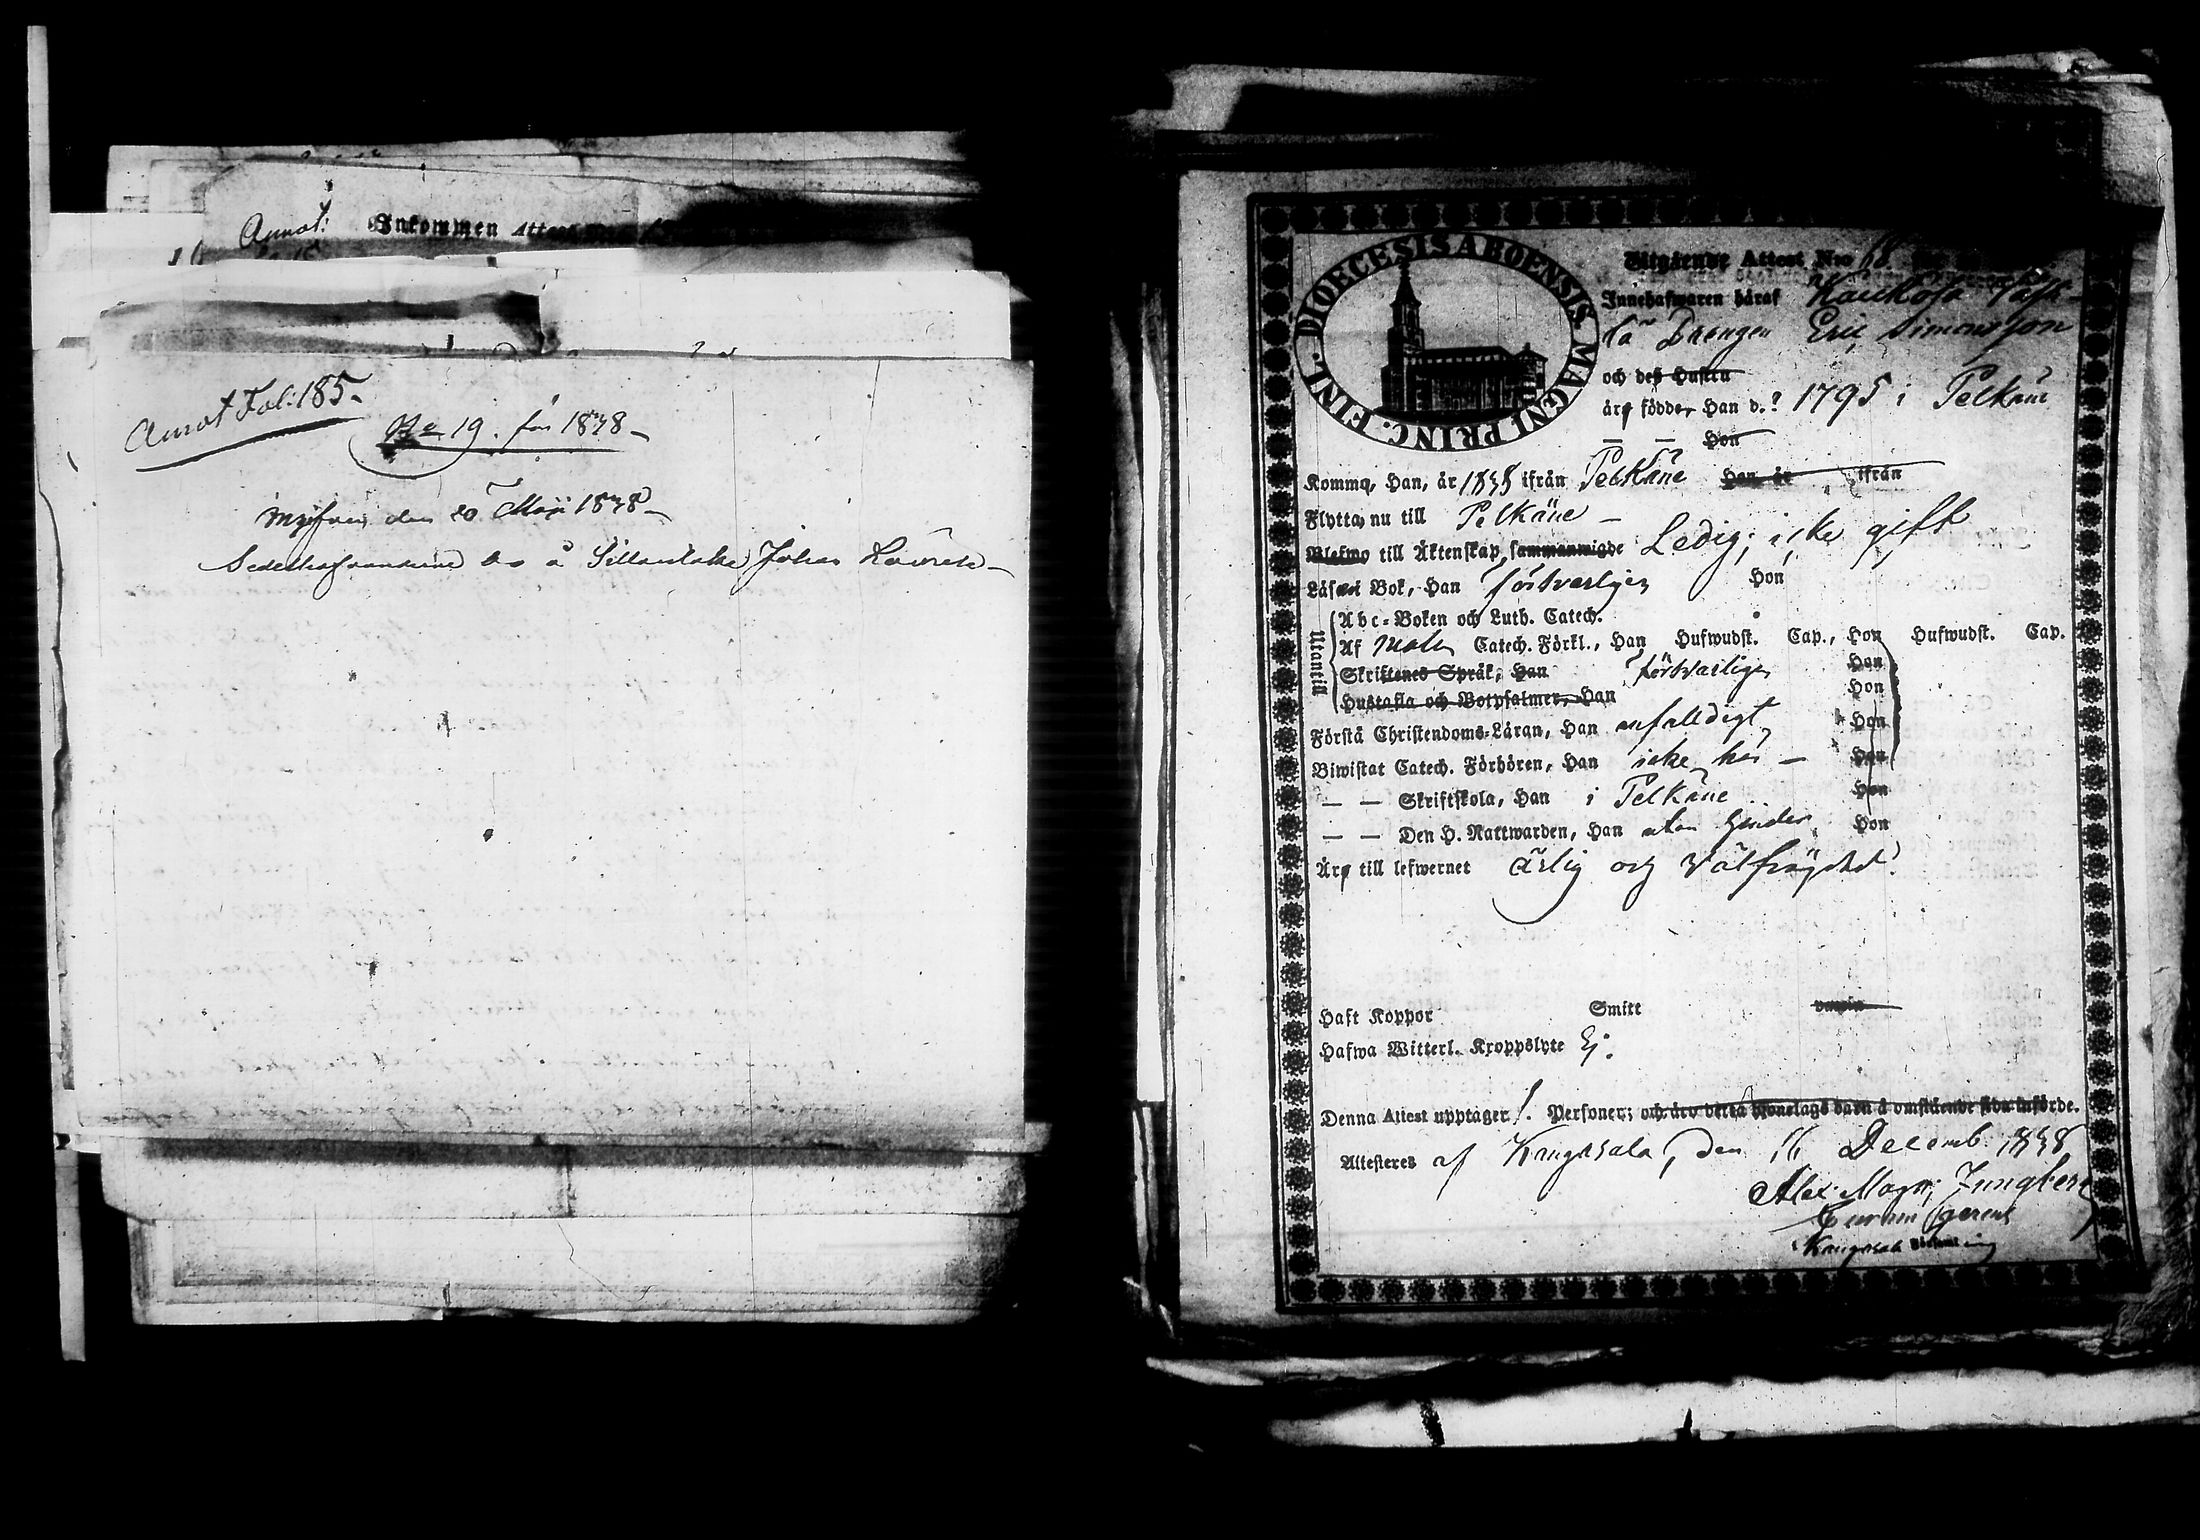 Annot: Inkommen Attest
Annot Fol: 185.
No 19. för 1838
den 20 Maji 1838
å Johan
DIOECESIS ABOENSIS MAGNI PRINC. FINL.
Utgående Attest Nro 68
Innehafwaren häraf
Drengen Eric Simonsson
och deß Hustru
äro födde, Han d. ? 1795 i Pelkäne
— — Hon
Komma, Han, år 1838 ifrån Pelkäne Hon, år ifrån
Flytta, nu till Pelkäne —
Blefwo till Äktenskap sammanwigde Ledig, icke gift
Läsa i Bok, Han försvarligen Hon
Utantill
Abc-Boken och Luth. Catech.
Af Catech. Förkl., Han Hufwudst. Cap., Hon Hufwudst. Cap.
Skriftenes Språk, Han försvarligen Hon
Hustafla och Botpsalmer, Han Hon
Förstå Christendoms-Läran, Han enfalldigt Hon
Biwistat Catech. Förhören, Han icke här — Hon
— — Skriftskola, Han i Pelkäne Hon
— — Den H. Nattwarden, Han utan hinder Hon
Äro till lefwernet ärlig och välfrägdad.
Haft Koppor Smitt
Hafwa Witterl. Kroppslyte Ej.
Denna Attest upptager 1. Personer; och äro detta Hionelags barn å omstående sida införde.
Attesteres af Kangasala, den 16 Decemb. 1838
Alex: Magn: Jungberg
Curam gerens